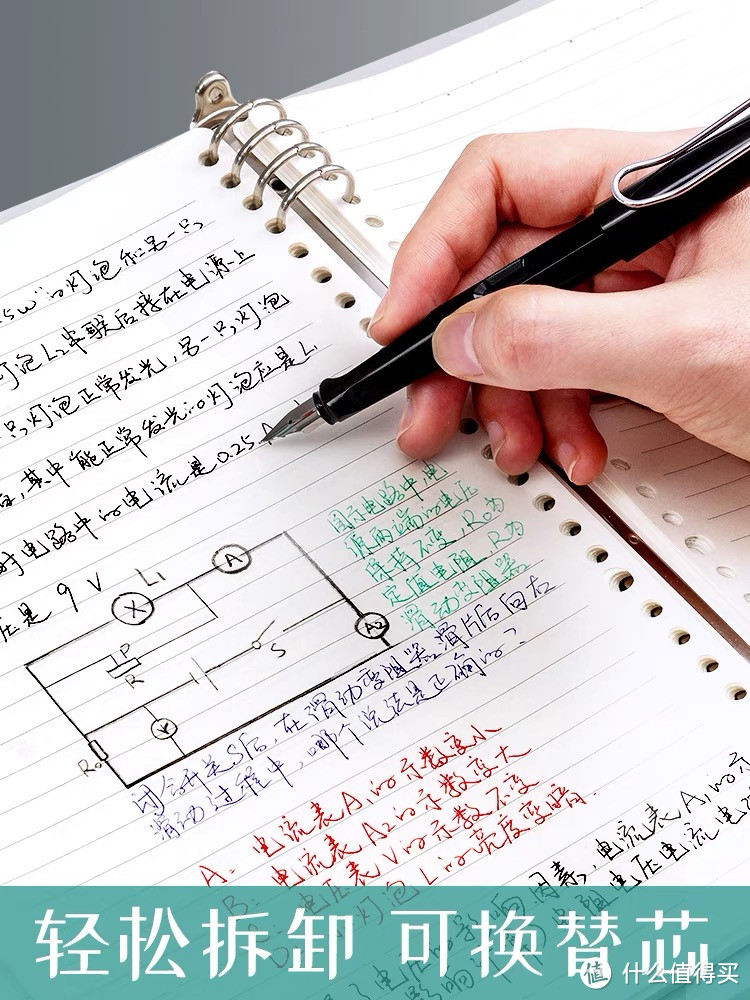 5W"的灯泡和另一只
灯泡L₂串联后接在电源上
只灯泡正常发光,另一只灯泡
其中能正常发光的灯泡应是L₁
时电路中的电流是0.25A
压是9V
L₁
A
X
P
R
S
A2
V
R₀
图所示电路中,电
源两端的电压
保持不变,R₀为
定值电阻,R为
滑动变阻器
闭合开关S后,在滑动变阻器滑片P向右
滑动过程中,哪个说法是正确的?
A:电流表A₁的示数变小
B:电流表A2的示数变大
电压表V的示数不变
灯泡L的亮度变暗.
因素,电流表A₁的示
电阻电压电流
轻松拆卸 可换替芯
值 什么值得买